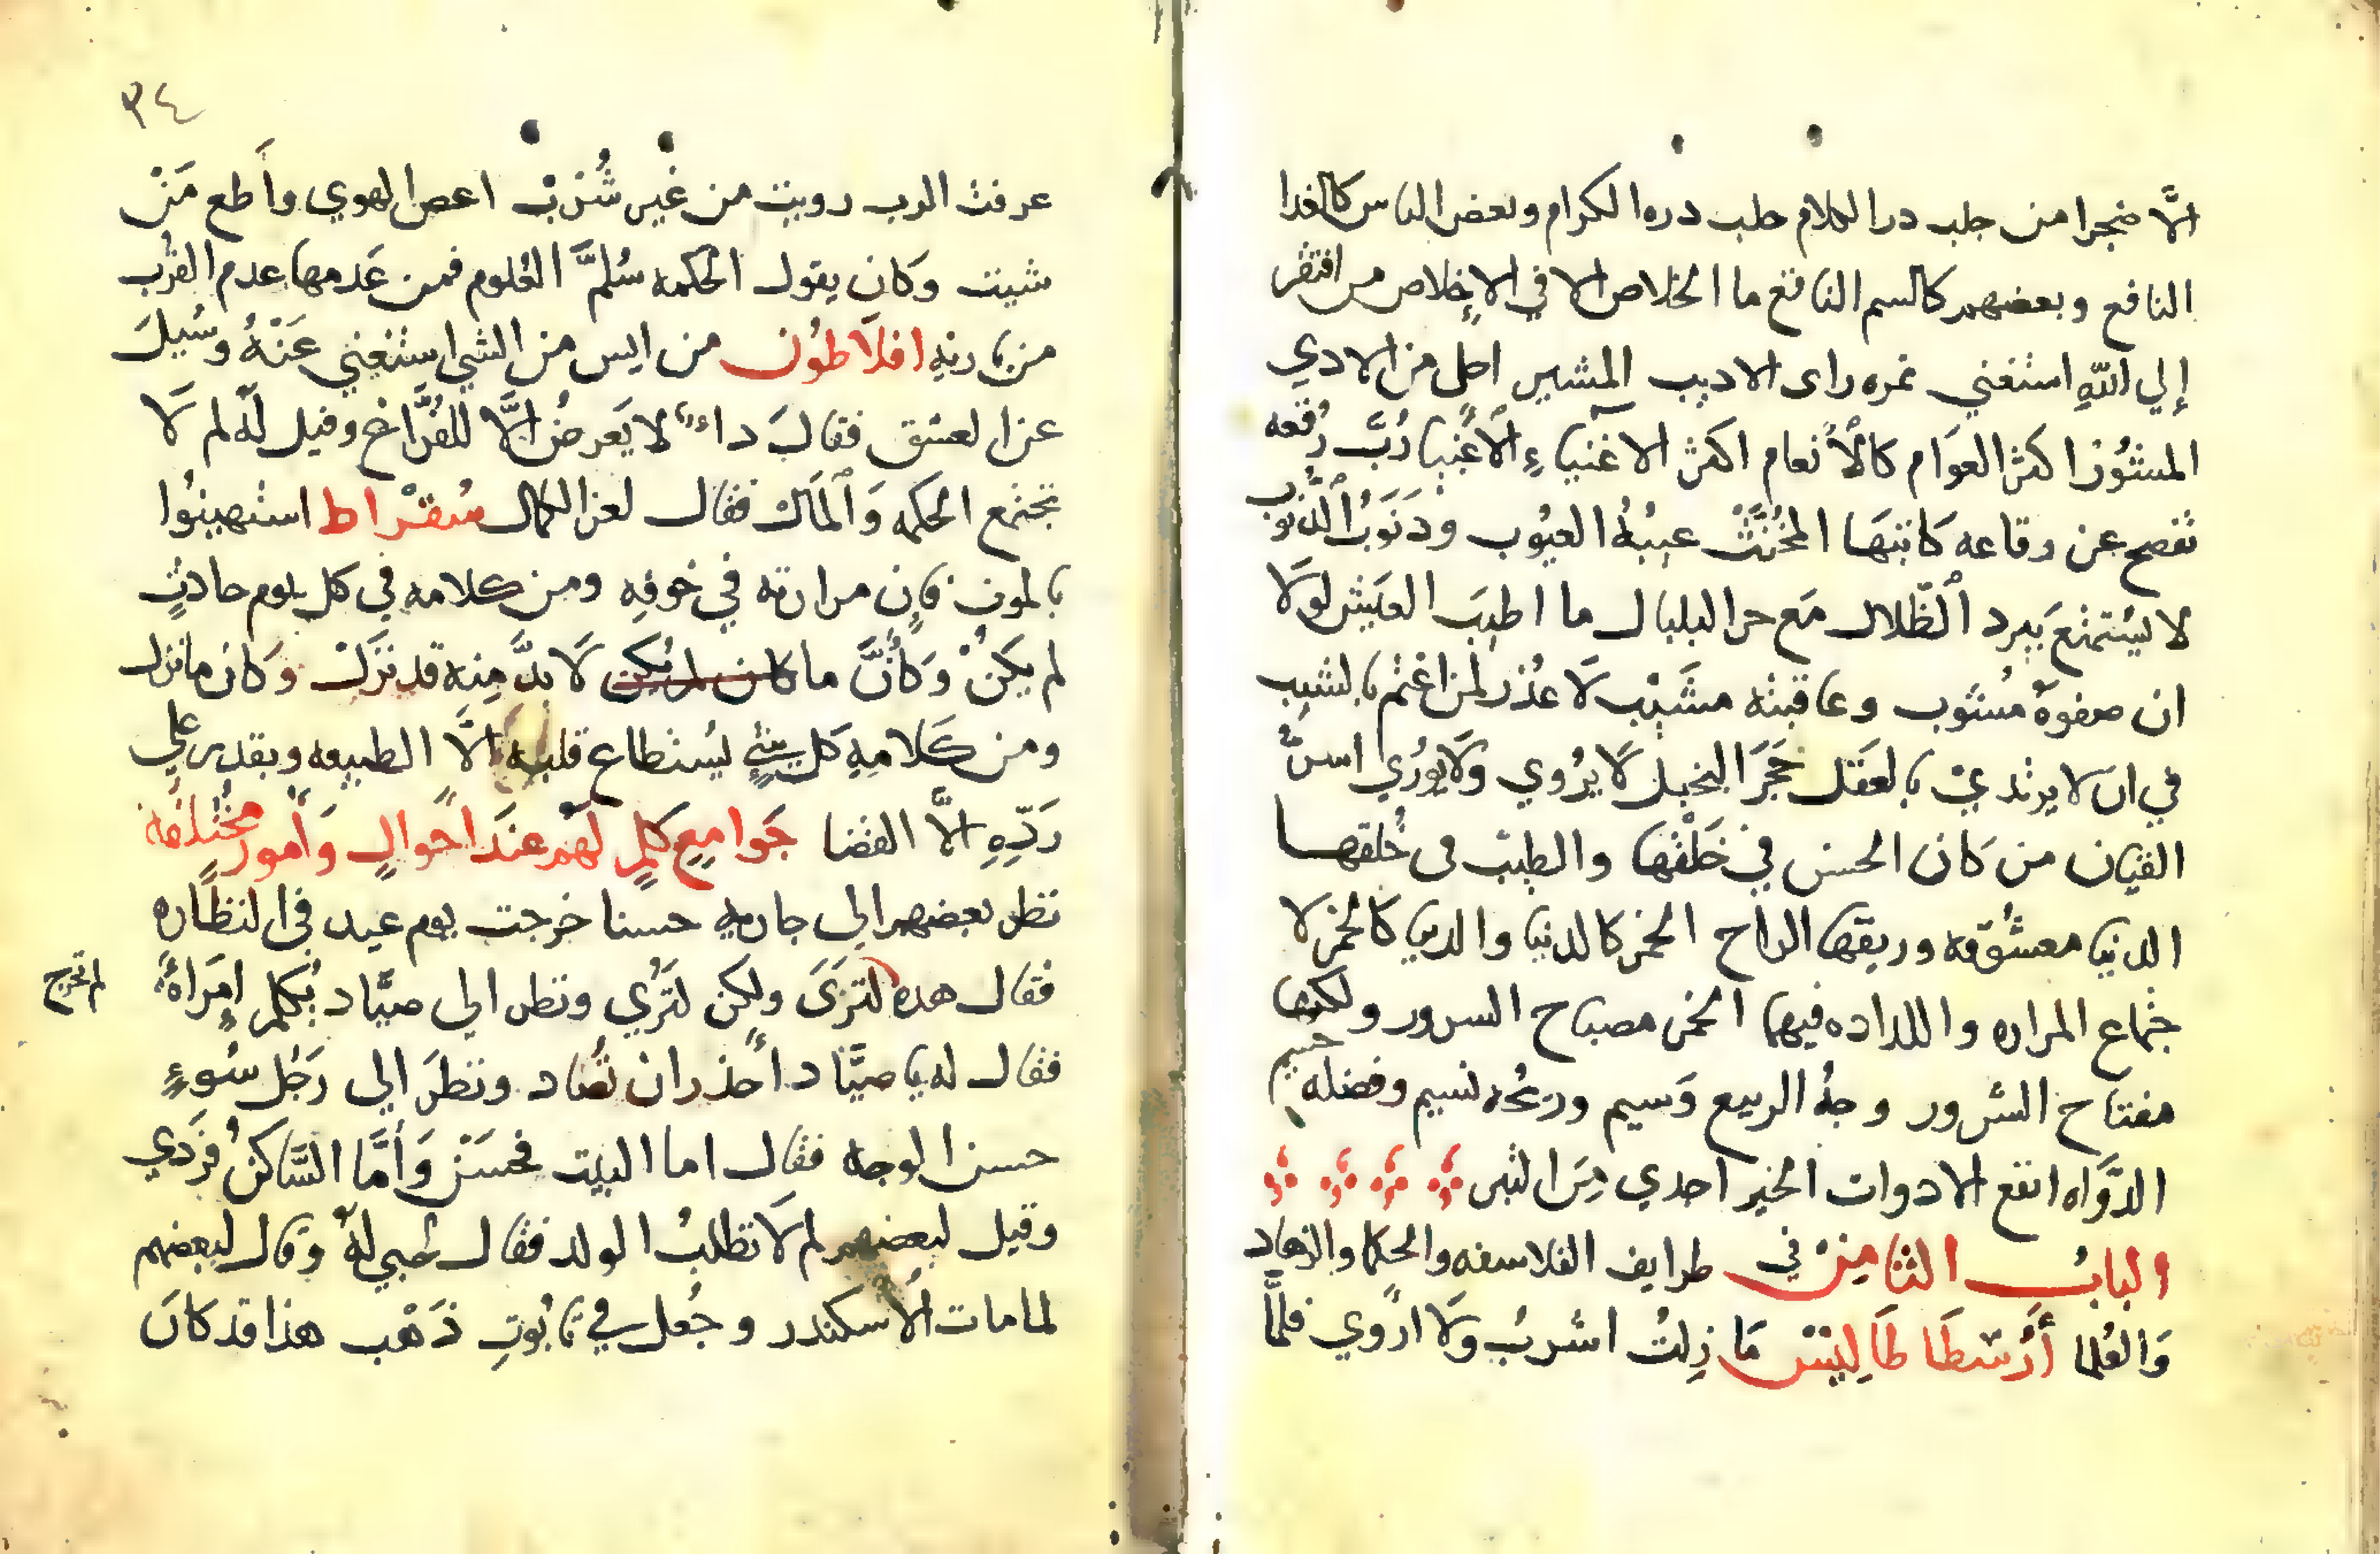 الّا ضجرا من حلب در الكلام حلب دره الكرام وبعض الناس كالغدا
النافع وبعضهم كالسم الناقع ما الخلاص الا في الإخلاص من افتقر
إلي اللهِ استغني غره راى الاديب المشير احلي من الاري
المشوُر اكثر العوَام كالأنعام اكثر الاغنياءِ الأغنيا رُبَّ رُقعه
تفصح عن رقاعه كَاتبهَا المخُنَّثْ عيبهُ العيُوب وذنوبُ الذنوب
لا يستمتع بَبرد الظّلال مَع حر البلبال ما اطيبَ العيش لولَا
ان صفوهُ مُشوب وعاقبته مشَيْب لَا عُذر لمن اغتم بالشيب
في ان لا يرتدي بالعقَل حَجَر البخيل لَا يرُوي ولَا يورُي احسن
القيان من كَان الحسن في خَلْقها والطيب فى خُلقها
الدنيا معشُوقه وريقها الراح الخمر كالدنيا والدنيا كالخمر لا
جتماع المراره واللداده فيهما الخمر مصباح السرور ولكنها
مفتاح الشرور وجهُ الربيع وَسيم وريحُه نسيم وفضله جسيم
الدَّواه انفع الادوات الخبر احدي مِنَ التبر
البابُ الثامِنْ في طرايف الفلاسفه والحكما والزهاد
وَالعُلما أرْسْطَا طَاليْسْ مَا زلتُ اشربُ ولَا ارْوي فلمَّا
٣٤
عرفت الرب رويت من غير شُرْبْ اعص الهوي وأَطع مَنْ
شيت وكَان يقول الحكمه سُلمَّ العُلوم فمن عَدمها عدم القُرب
من باريهِ افلَاطوُن من ايس من الشي استغني عَنْهُ وسُيلَ
عن العشق فقالَ داءٌ لا يَعرضُ الَّا للفُرَّاغ وقيل لهُ لم لَا
تجتمع الحكمه وَالمَال فقال لعز الكمال سُقْراط استهينُوا
بالموت فإن مرارته في خوفِه ومن كلامه في كل يوم حادثٍ
لم يكَنْ وَكأنَّ ما كان لم يكن لَا بدَّ مِنه قد نزَلْ وَكان ما نزل
ومن كَلامِهِ كَل شئٍ يُستطاع قلبه الَّا الطبيعه ويقدر علي
رَدِّهِ الَّا القضا جَوامِع كلمٍ لَهُم عندَ احْوالٍ وَأمورٍ مخُتلفه
نظر بعضهم الي جاريه حسنا خرجت يوم عيد في النظَّاره
فقال هده لم تخرج لترَىَ ولكن لتُرَي ونظر الي صيَّاد يُكلم امَراةً
فقال له يا صيَّاد احْذر ان تُصَاد ونظرَ الي رَجُل سُوءٍ
حسن الوجه فقال اما البيت فحسَنْ وَأمَّا السَّاكنُ فرَدي
وقيل لبعضهم لم لَا تطلبُ الولد فقال لحُبي لهُ وقال لبعضهم
لما مات الأسكندر وجُعل في تابُوتِ ذَهْب هذا قد كانَ